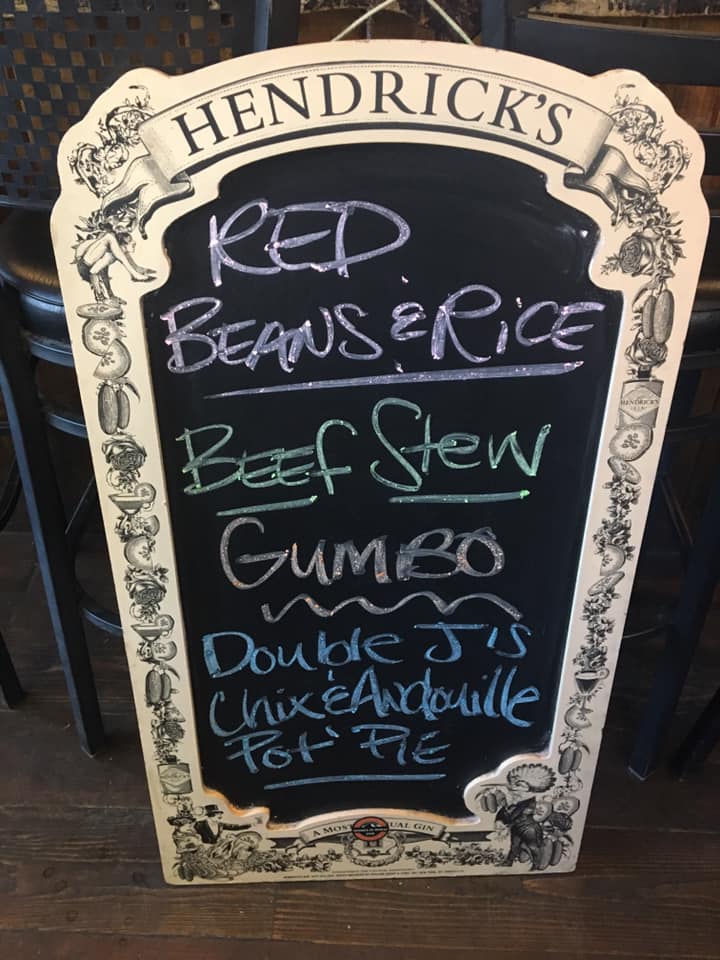 HENDRICK'S
RED
BEANS & RiCE
BEEF Stew
GUMBO
Double J's
Chix & Andouille
Pot PIE
HENDRICK'S
A MOST UAL GIN